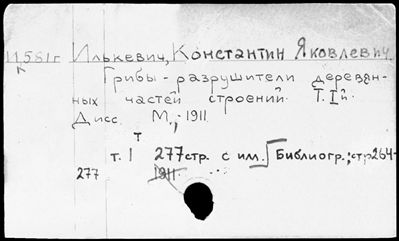 11,581г Илькевич, Константин Яковлевич.
Грибы - разрушители деревян-
ных частей строений. Т. Iй.
Дисс. М.; 1911
т
т. 1 277 стр. с илл. Библиогр.; стр 264-
277 1911.